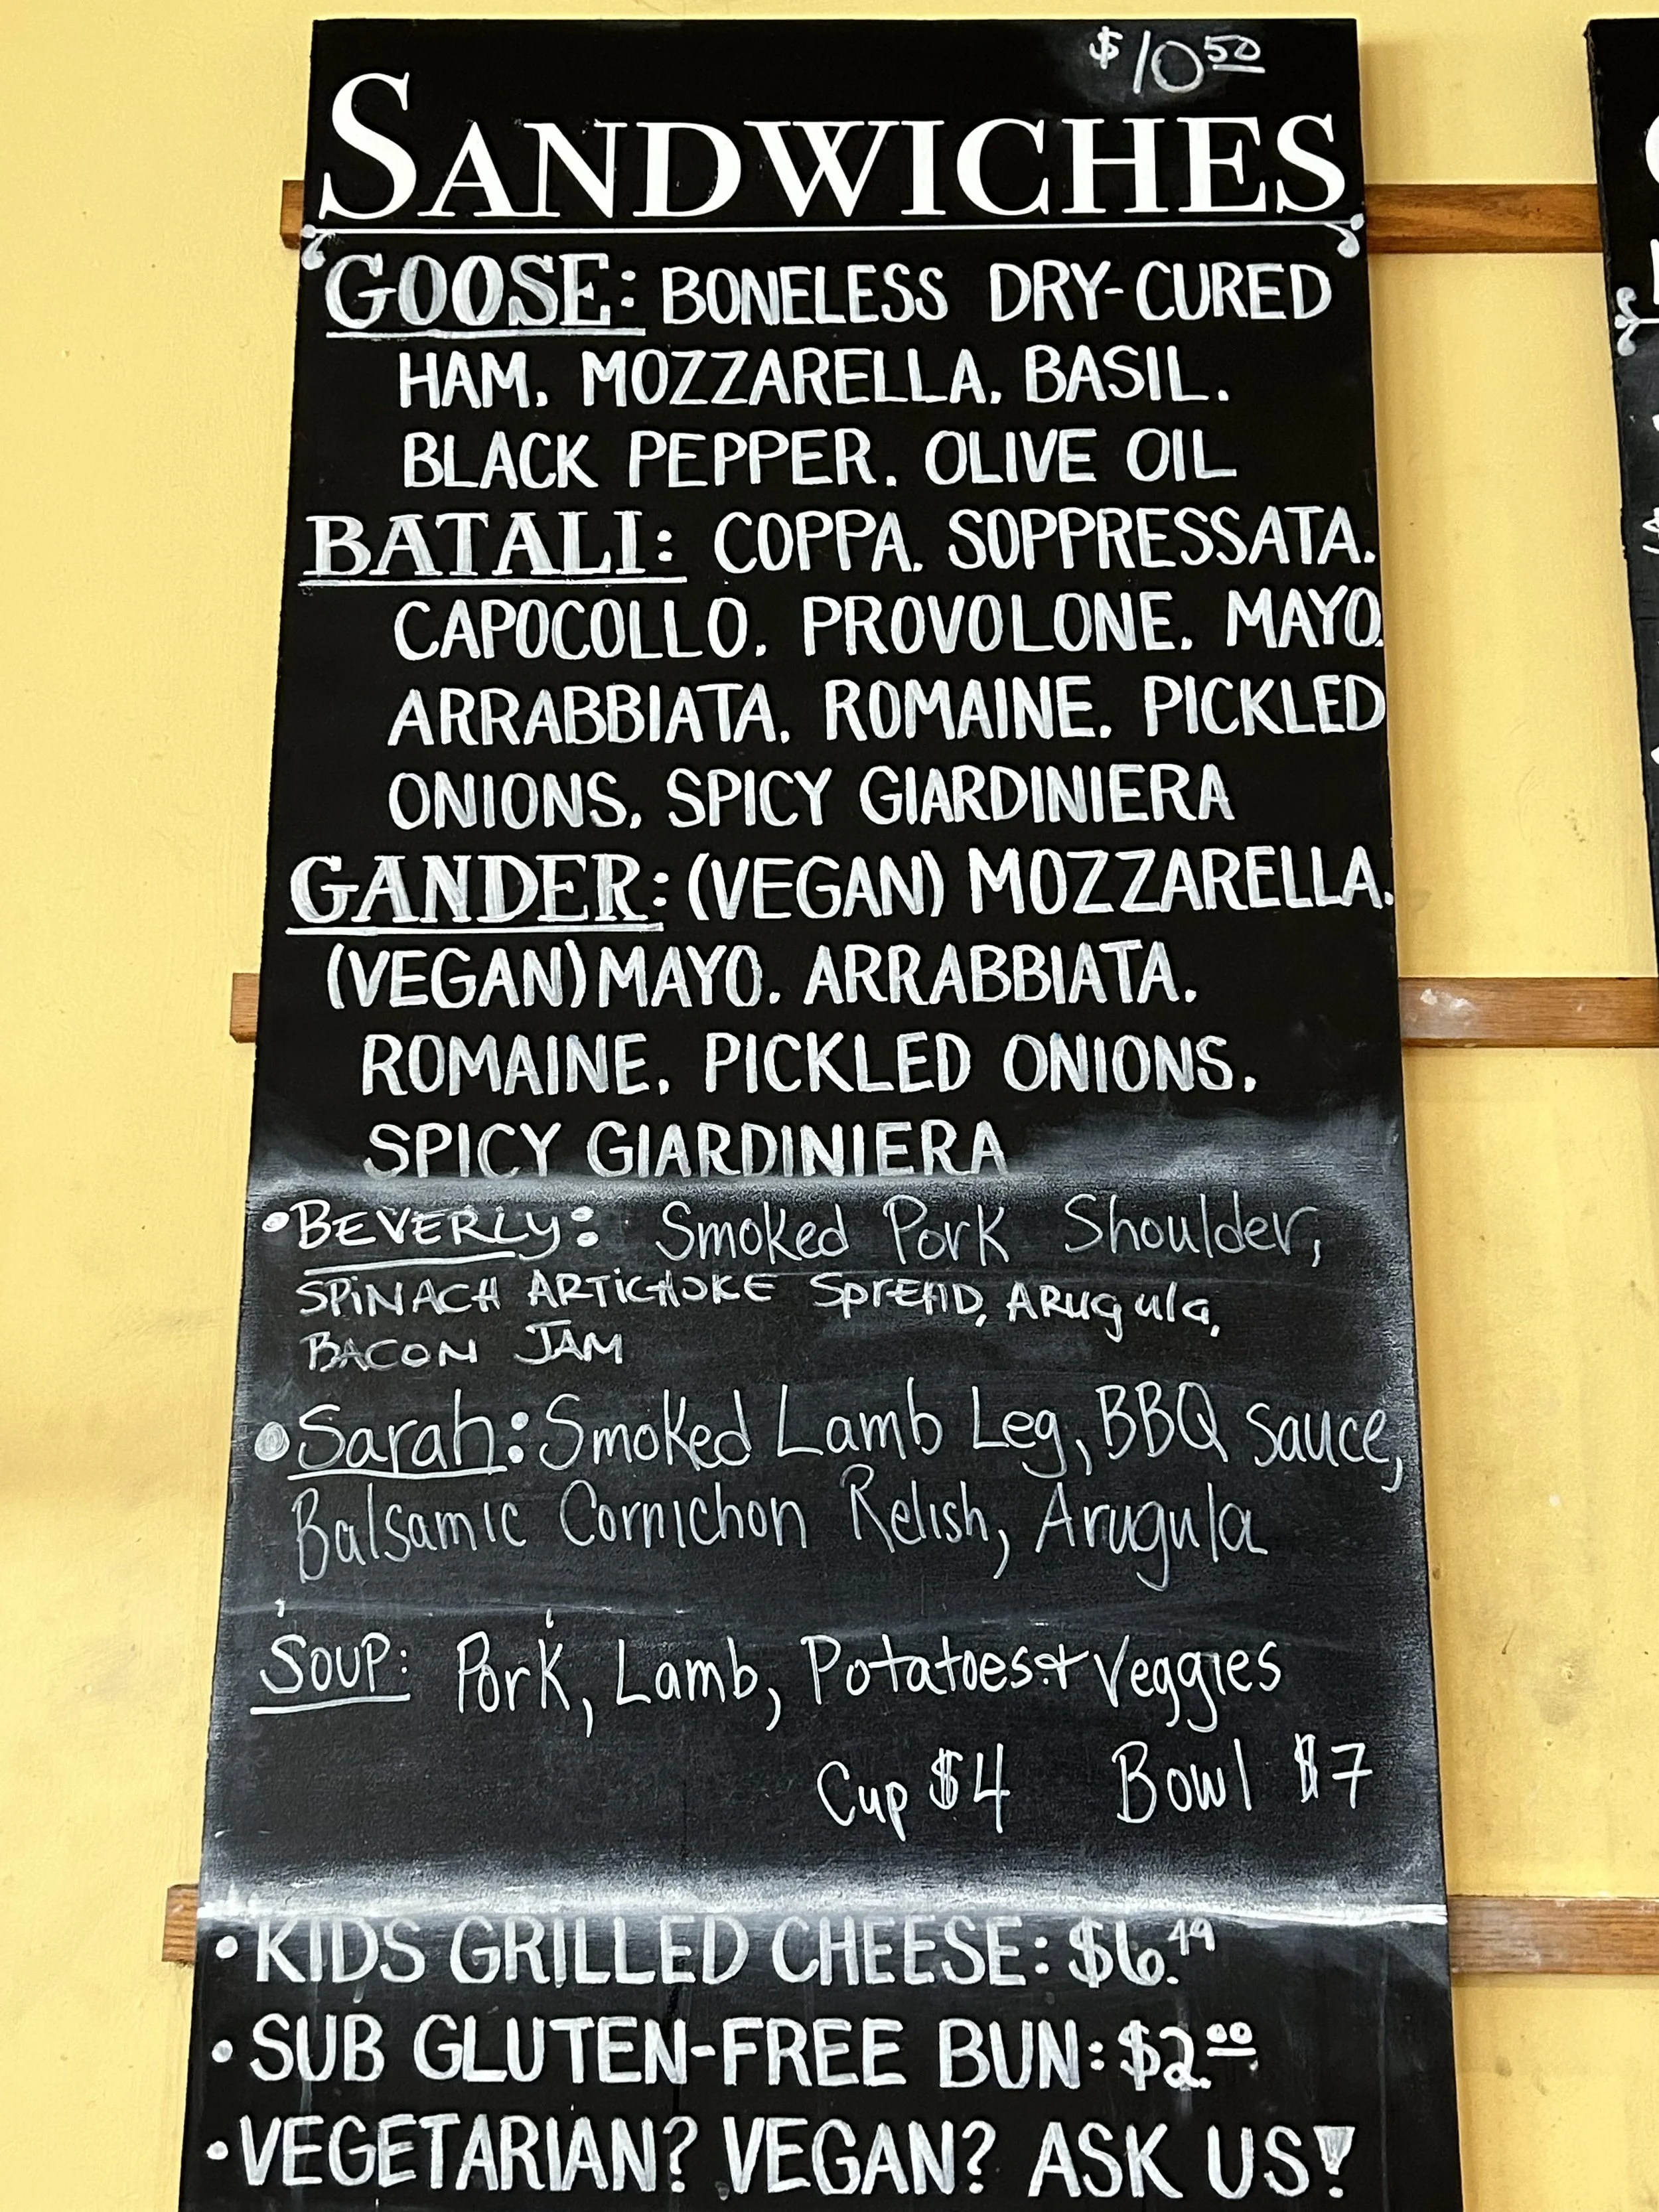 $10.50
SANDWICHES
GOOSE: BONELESS DRY-CURED
HAM, MOZZARELLA, BASIL,
BLACK PEPPER, OLIVE OIL
BATALI: COPPA, SOPPRESSATA,
CAPOCOLLO, PROVOLONE, MAYO,
ARRABBIATA, ROMAINE, PICKLED
ONIONS, SPICY GIARDINIERA
GANDER: (VEGAN) MOZZARELLA,
(VEGAN) MAYO, ARRABBIATA,
ROMAINE, PICKLED ONIONS,
SPICY GIARDINIERA
• BEVERLY: Smoked Pork Shoulder,
SPINACH ARTICHOKE SPREAD, ARugula,
BACON JAM
• Sarah: Smoked Lamb Leg, BBQ Sauce,
Balsamic Cornichon Relish, Arugula
SOUP: Pork, Lamb, Potatoes + Veggies
Cup $4 Bowl $7
• KIDS GRILLED CHEESE: $6.49
• SUB GLUTEN-FREE BUN: $2.00
• VEGETARIAN? VEGAN? ASK US!